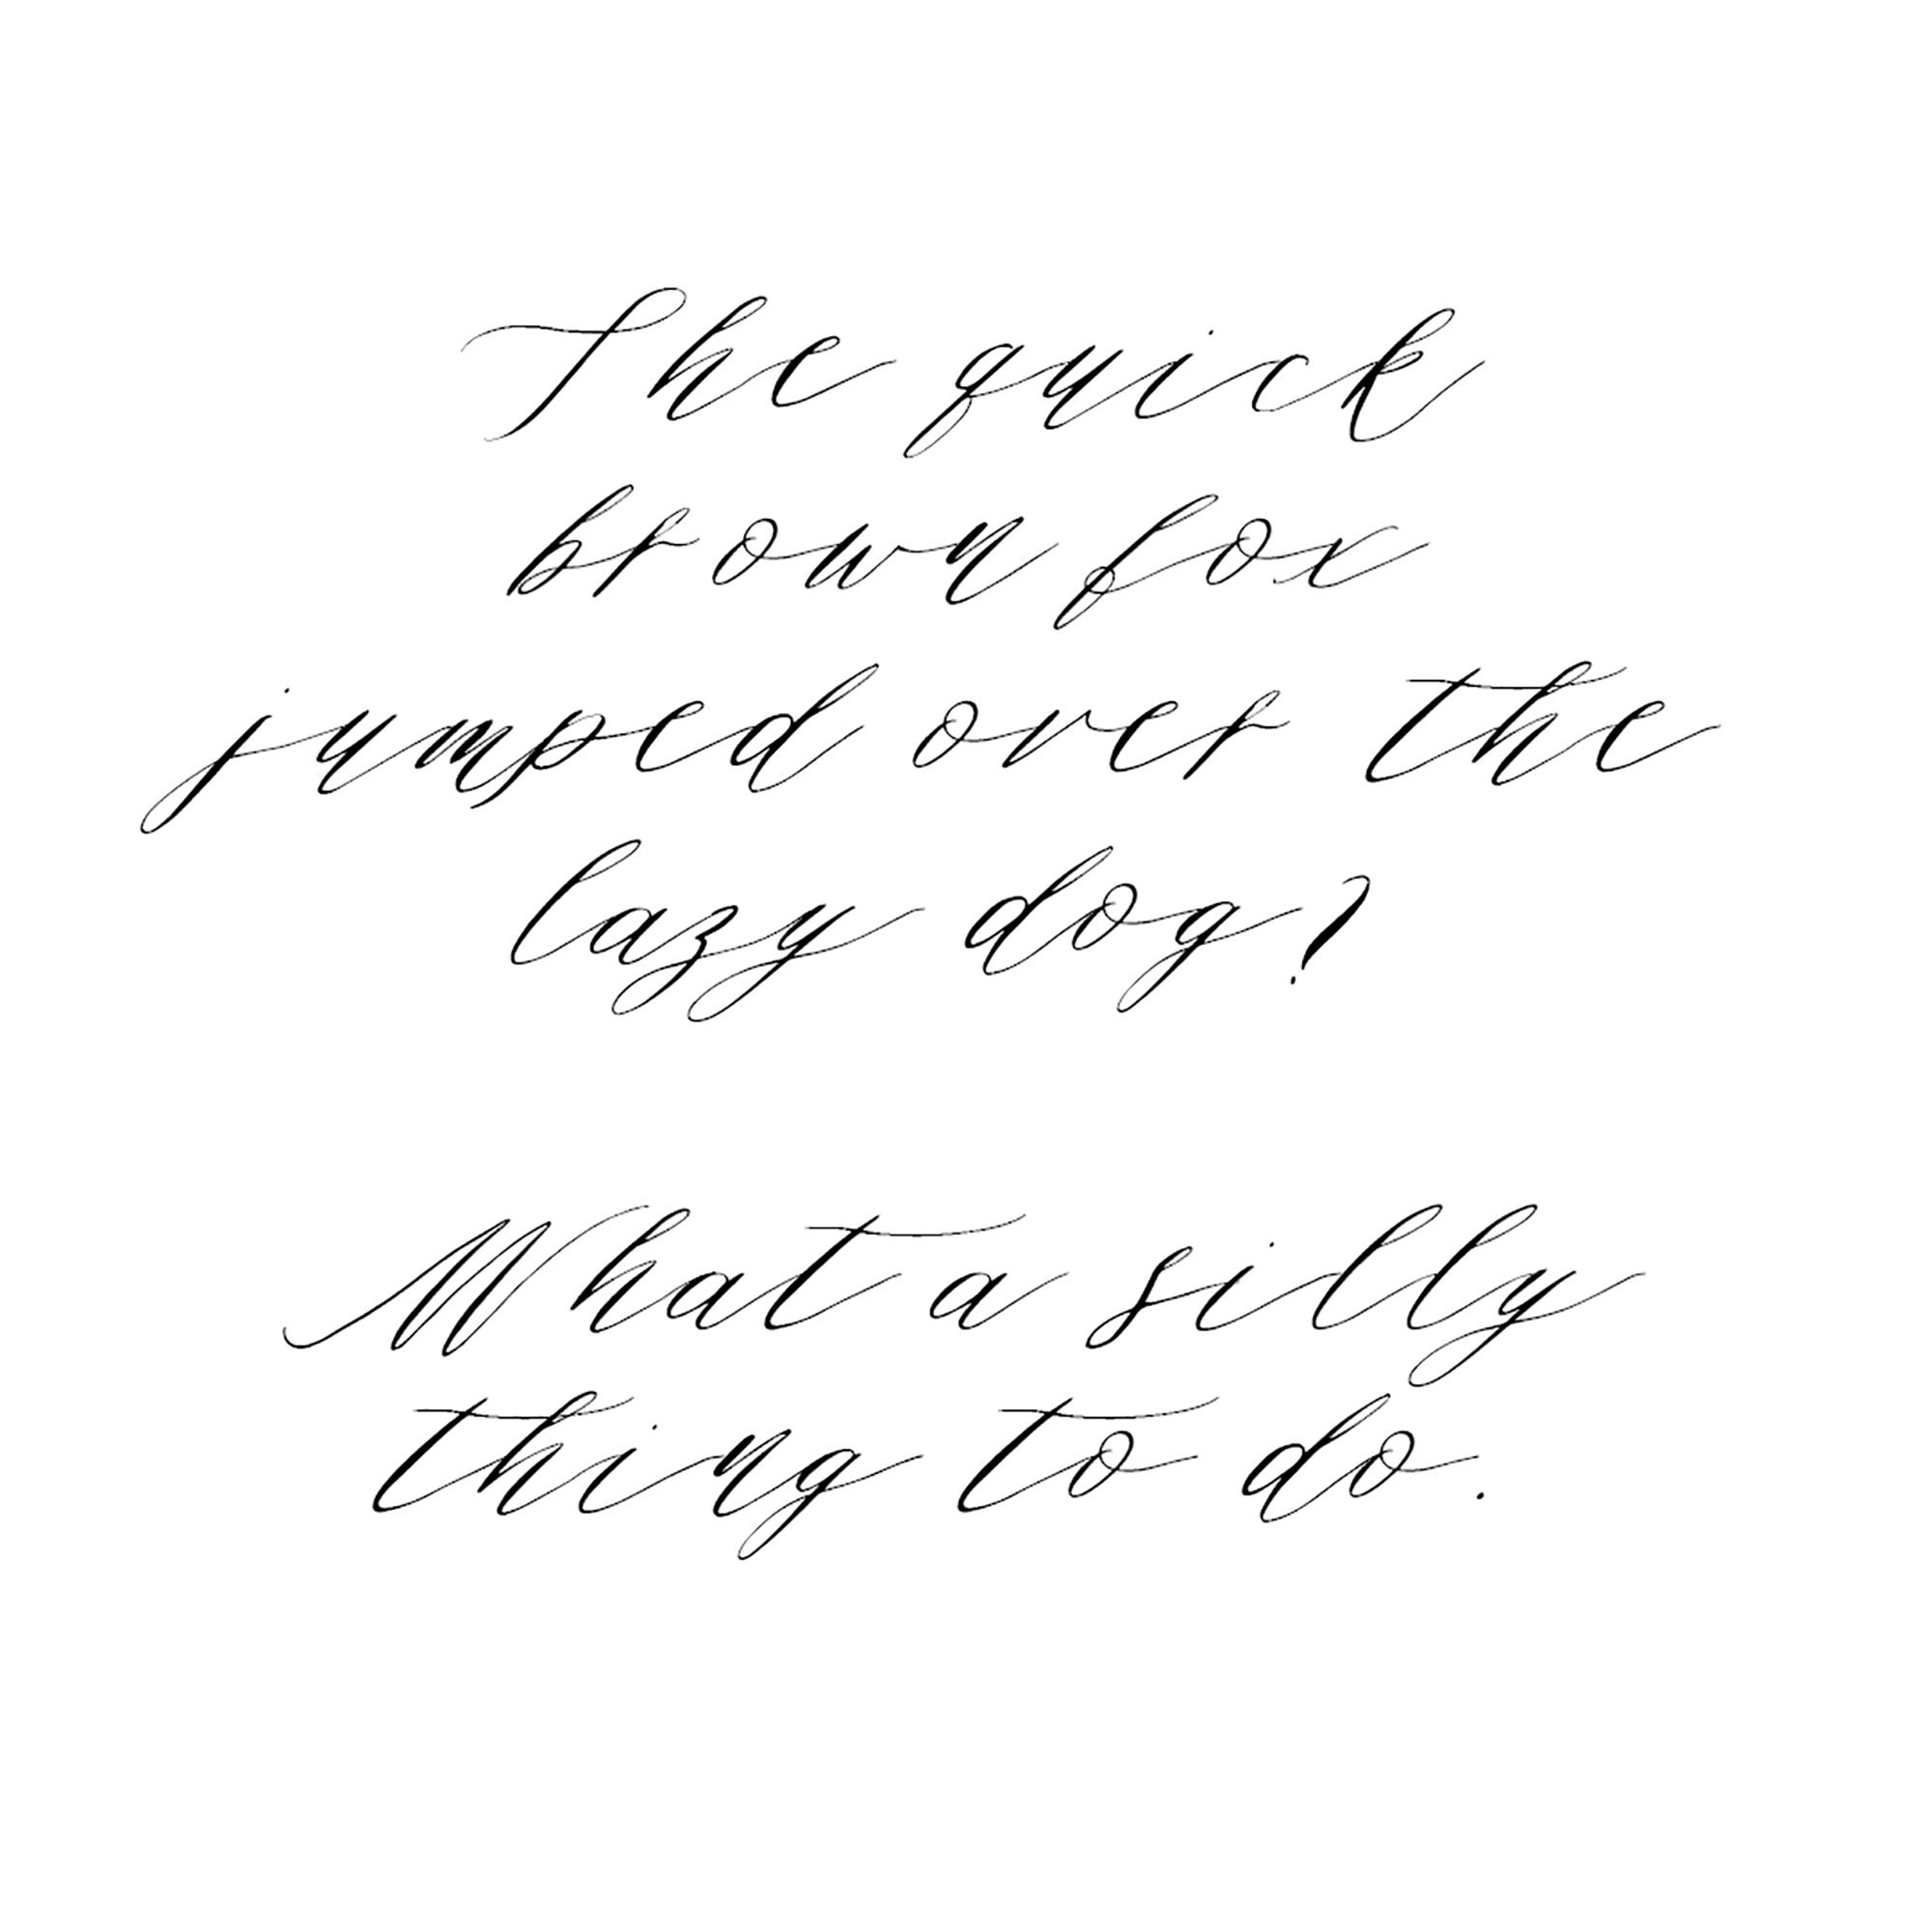 The quick
brown fox
jumped over the
lazy dog?
What a silly
thing to do.